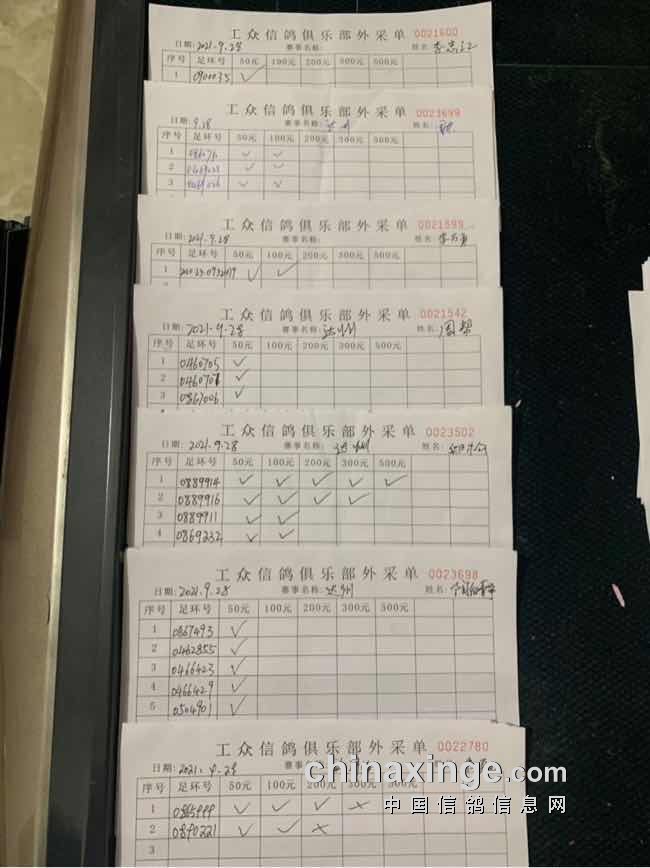 工众信鸽俱乐部外采单 0021600
日期: 2021.9.28 赛事名称: 姓名:
序号 足环号 50元 100元 200元 300元 500元
1 0900035 ✓
工众信鸽俱乐部外采单 0023699
日期: 9.28 赛事名称: 达州 姓名:
序号 足环号 50元 100元 200元 300元 500元
1 ✓ ✓
2 ✓ ✓
3 ✓ ✓
工众信鸽俱乐部外采单 0021599
日期: 2021.9.28 赛事名称: 姓名:
序号 足环号 50元 100元 200元 300元 500元
1 ✓ ✓
工众信鸽俱乐部外采单 0021542
日期: 2021.9.28 赛事名称: 达州 姓名:
序号 足环号 50元 100元 200元 300元 500元
1 0460705 ✓
2 0460708 ✓
3 0867006 ✓
工众信鸽俱乐部外采单 0023502
日期: 2021.9.28 赛事名称: 达州 姓名:
序号 足环号 50元 100元 200元 300元 500元
1 0889914 ✓ ✓ ✓ ✓ ✓
2 0889916 ✓ ✓ ✓ ✓
3 0889911 ✓ ✓
4 0869232 ✓ ✓
工众信鸽俱乐部外采单 0023698
日期: 2021.9.28 赛事名称: 达州 姓名:
序号 足环号 50元 100元 200元 300元 500元
1 0867493 ✓
2 0462855 ✓
3 0466423 ✓
4 0466429 ✓
5 0504901 ✓
工众信鸽俱乐部外采单 0022780
日期: 2021.9.28 赛事
chinaxinge.com
序号 足环号 50元 100元 200元 300元 500元
中国信鸽信息网
1 0865999 ✓ ✓ ✓ ×
2 0890221 ✓ ✓ ×
3